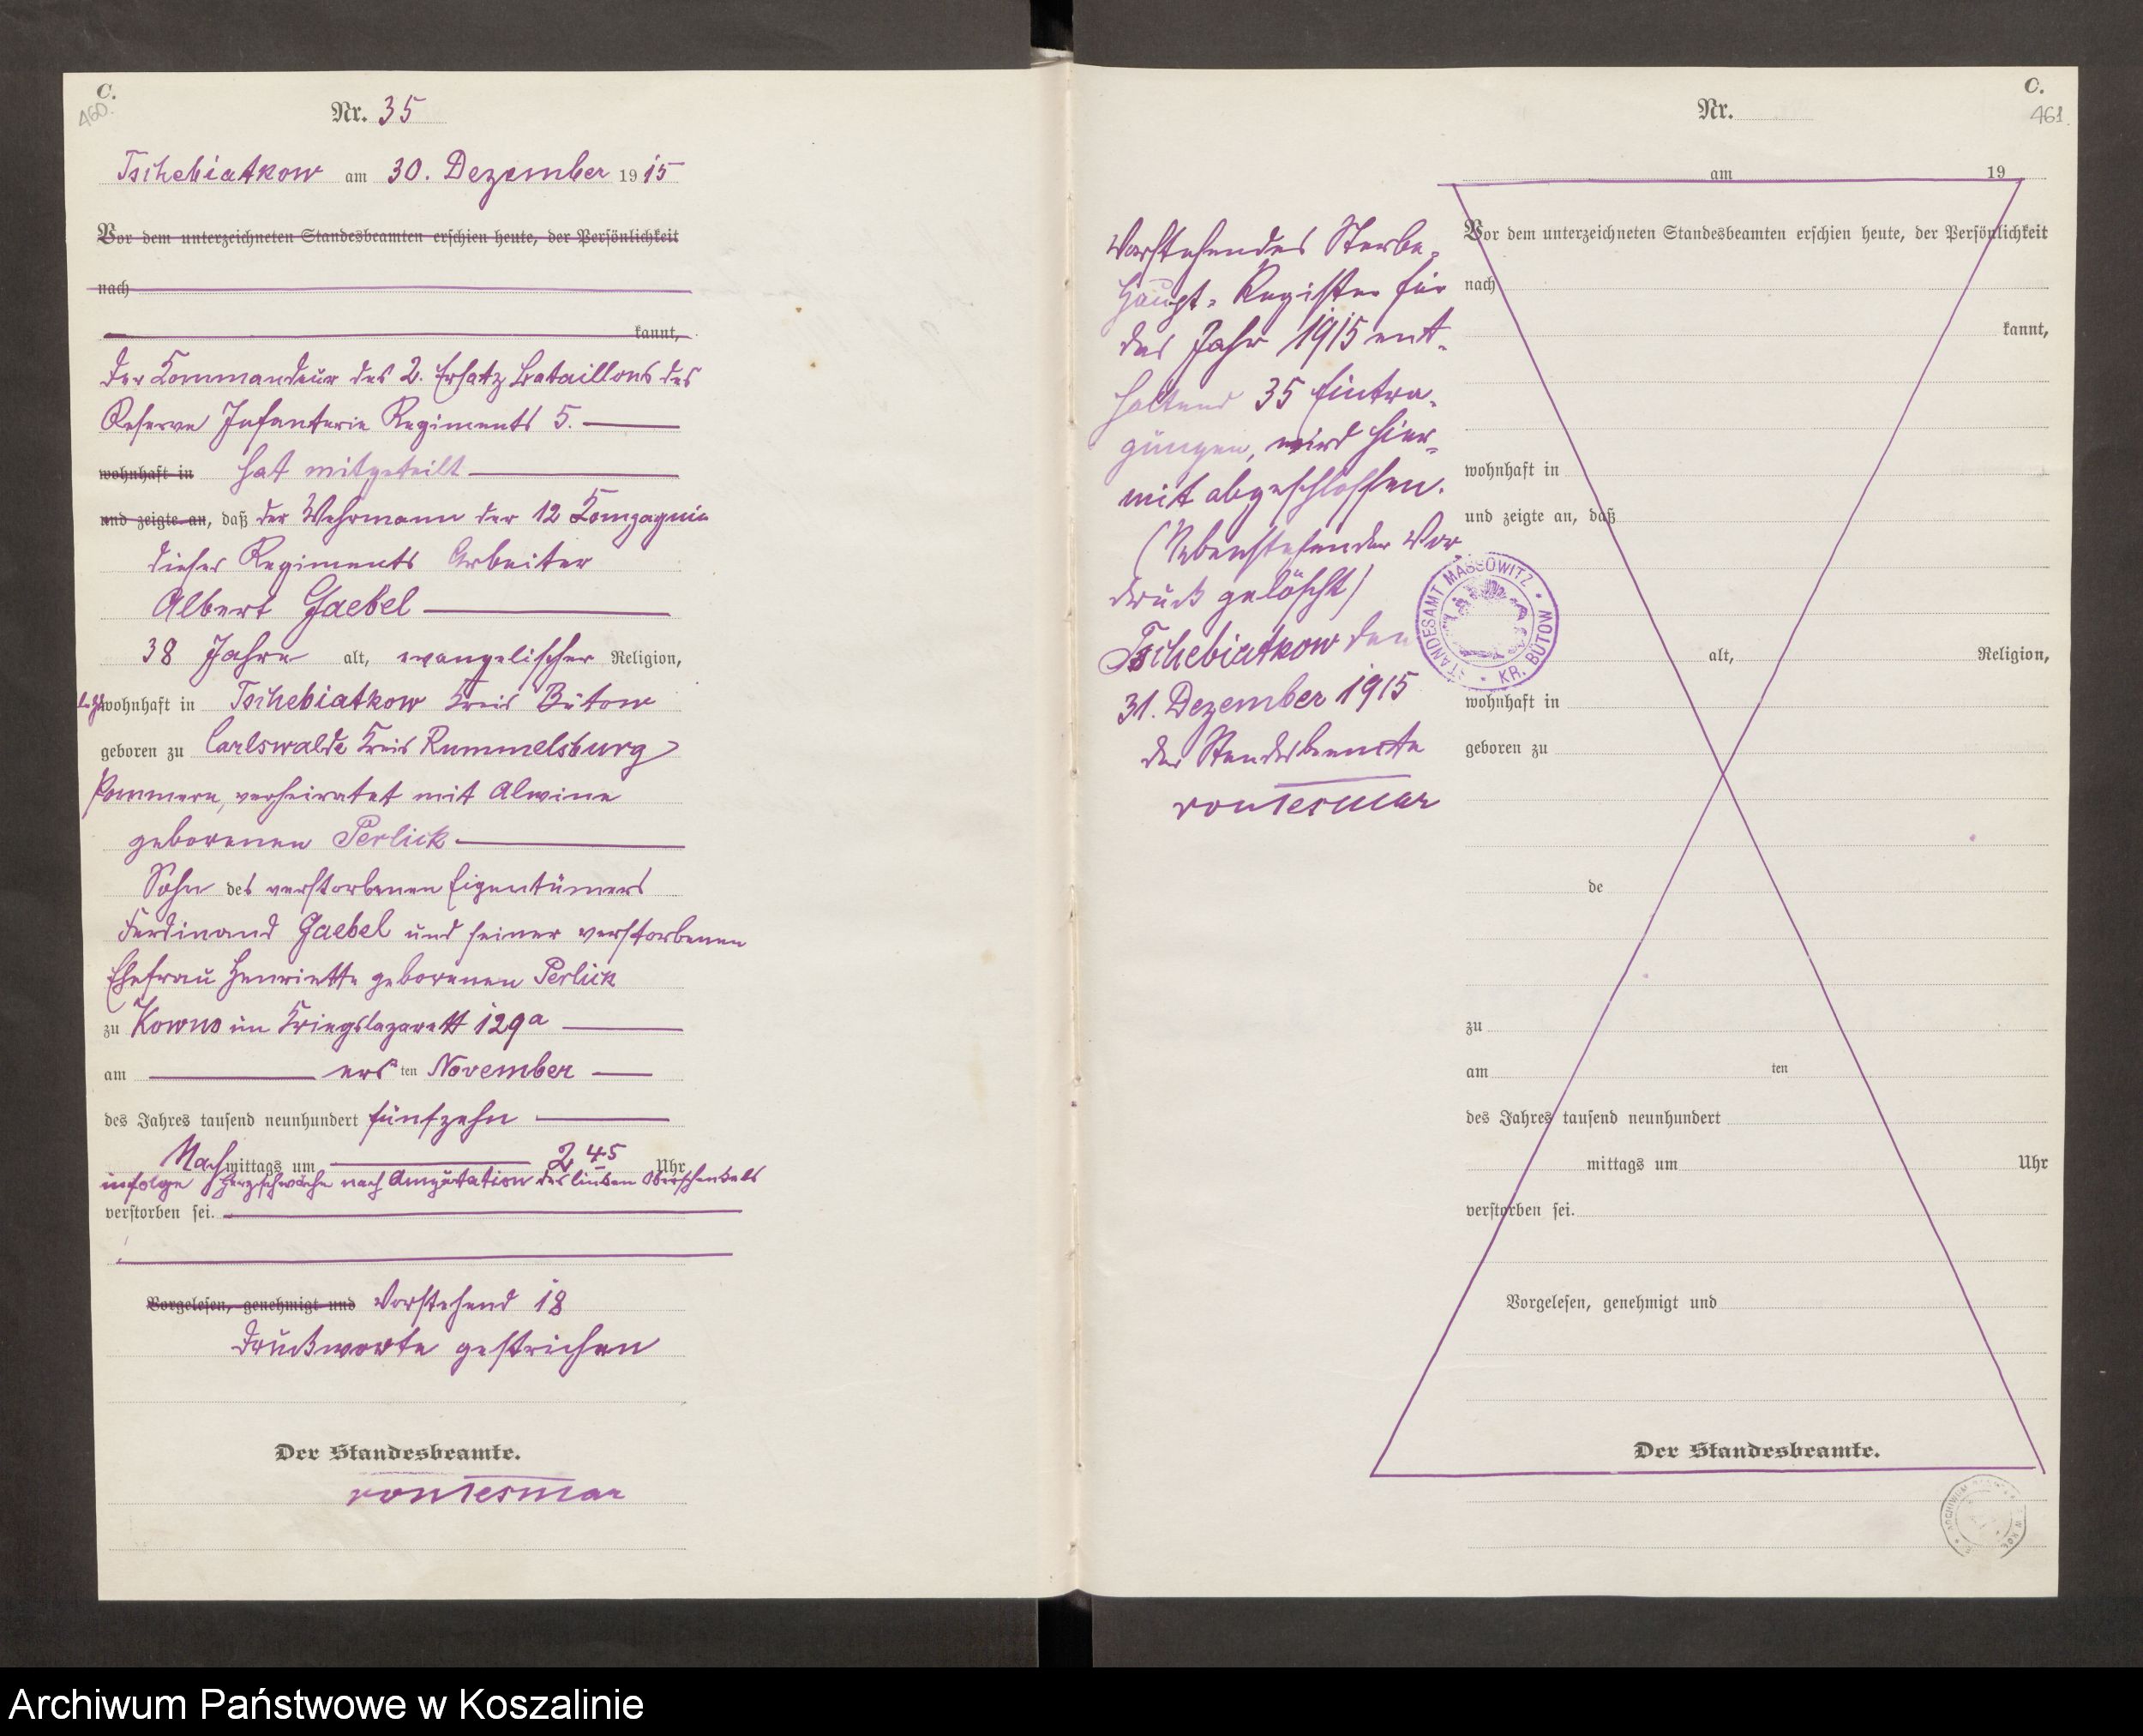 C.
460.
Nr. 35
Tschebiatkow am 30. Dezember 1915
Vor dem unterzeichneten Standesbeamten erschien heute, der Persönlichkeit
nach
kannt,
Der Kommandeur des 2. Ersatz Bataillons des
Reserve Infanterie Regiments 5.
wohnhaft in hat mitgeteilt
und zeigte an, daß der Wehrmann der 12 Kompagnie
dieses Regiments Arbeiter
Albert Gaebel
38 Jahre alt, evangelischer Religion,
wohnhaft in Tschebiatkow Kreis Bütow
geboren zu Carlswalde Kreis Rummelsburg
Pommern, verheiratet mit Alwine
geborenen Perlick
Sohn des verstorbenen Eigentümers
Ferdinand Gaebel und seiner verstorbenen
Ehefrau Henriette geborenen Perlick
zu Kowno im Kriegslazarett 129a
am ersten November
des Jahres tausend neunhundert fünfzehn
Nachmittags um 2 45 Uhr
infolge Herzschwäche nach Amputation des linken Oberschenkels
verstorben sei.
Vorgelesen, genehmigt und Vorstehend 18
Druckworte gestrichen
Der Standesbeamte.
C.
461.
Nr.
am 19
Vorstehendes Sterbe-
Haupt-Register für
das Jahr 1915 ent-
haltend 35 Eintra-
gungen, wird hier-
mit abgeschlossen.
(Nebenstehender Vor
druck gelöscht)
Tschebiatkow den
31. Dezember 1915
der Standesbeamte
STANDESAMT MASSOWITZ * KR. BÜTOW *
Vor dem unterzeichneten Standesbeamten erschien heute, der Persönlichkeit
nach
kannt,
wohnhaft in
und zeigte an, daß
alt, Religion,
wohnhaft in
geboren zu
de
zu
am ten
des Jahres tausend neunhundert
mittags um Uhr
verstorben sei.
Vorgelesen, genehmigt und
Der Standesbeamte.
Archiwum Państwowe w Koszalinie